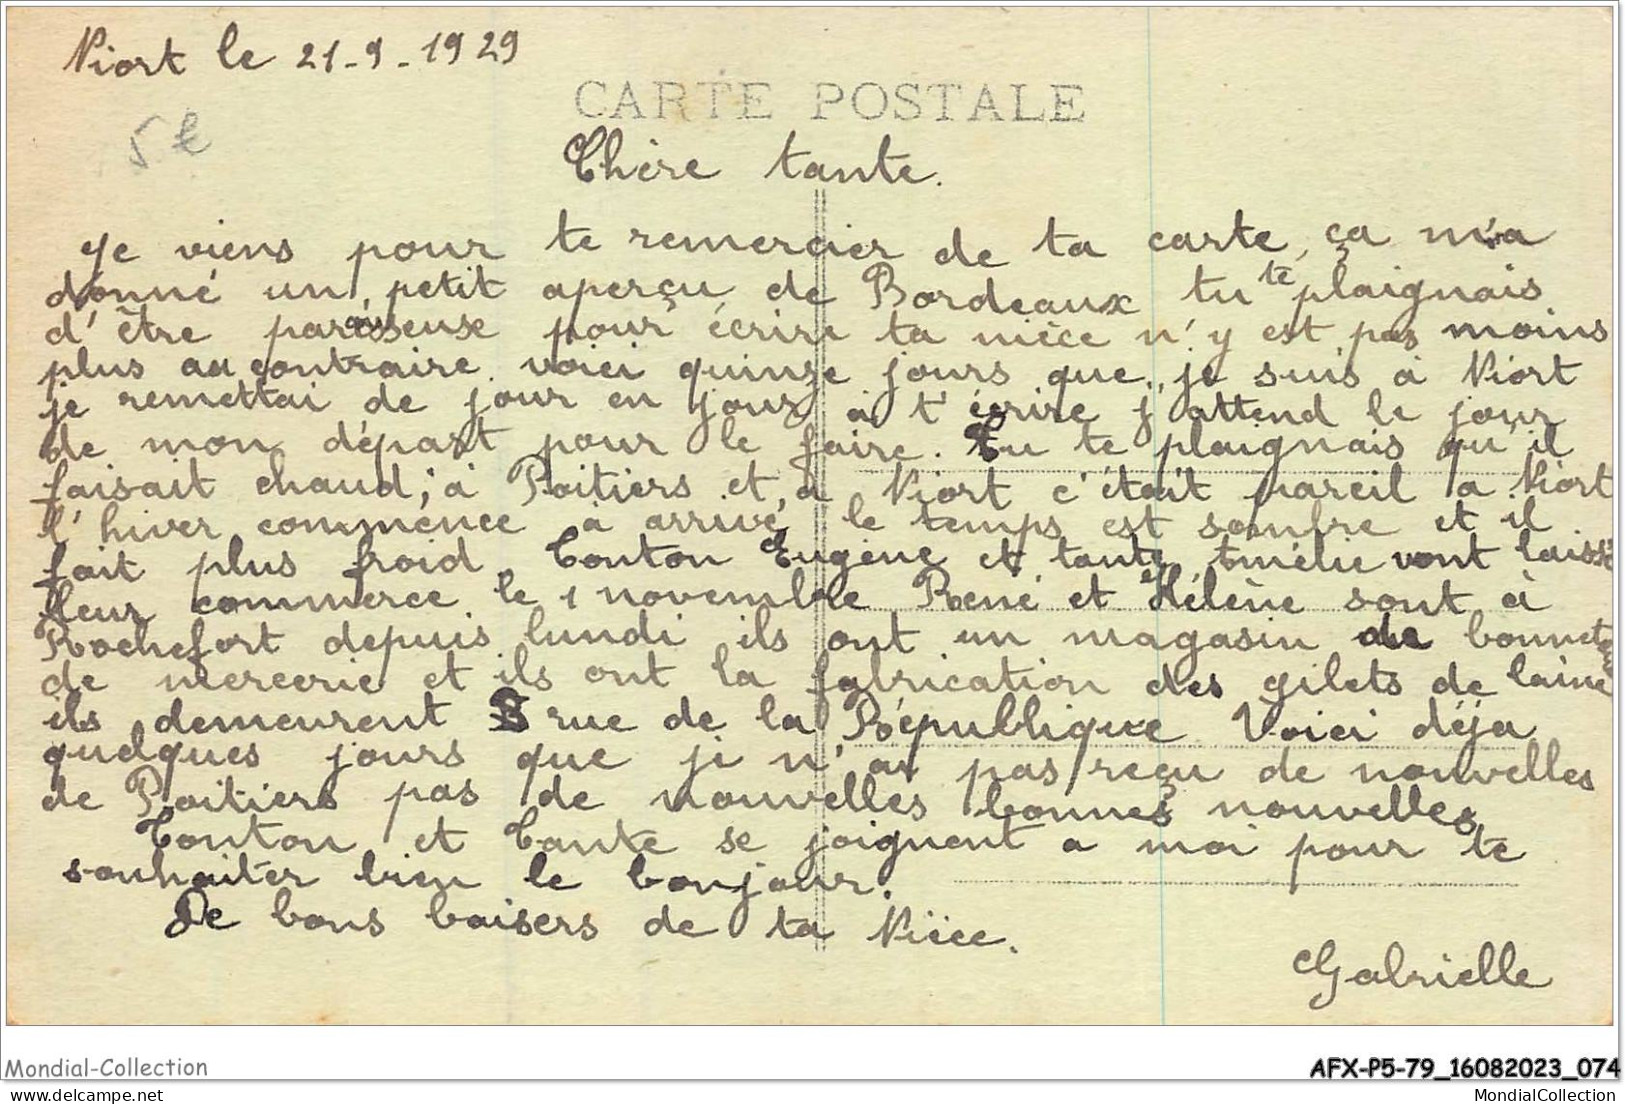 Niort le 21-9-1929
5€
CARTE POSTALE
Chère tante.
Je viens pour te remercier de ta carte, ça m'a
donné un petit aperçu de Bordeaux tu te plaignais
d'être paresseuse pour écrire ta nièce n'y est pas moins
plus au contraire. voici quinze jours que je suis à Niort
je remettai de jour en jour à t'écrire j'attend le jour
de mon départ pour le faire. Tu te plaignais qu'il
faisait chaud, à Poitiers et, à Niort c'était pareil a Niort
l'hiver commence à arrivé, le temps est sombre et il
fait plus froid. Tonton Eugène et tante Emélie vont laissé
leur commerce le 1 novembre René et Hélène sont à
Rochefort depuis lundi ils ont un magasin de bonneterie
de mercerie et ils ont la fabrication des gilets de laine
ils demeurent 8 rue de la République Voici déja
quelques jours que je n'ai pas reçu de nouvelles
de Poitiers pas de nouvelles bonnes nouvelles
Tonton et Tante se joignent a moi pour te
souhaiter bien le bonjour.
De bons baisers de ta Nièce.
Gabrielle
Mondial-Collection
AFX-P5-79_16082023_074
delcampe.net
MondialCollection